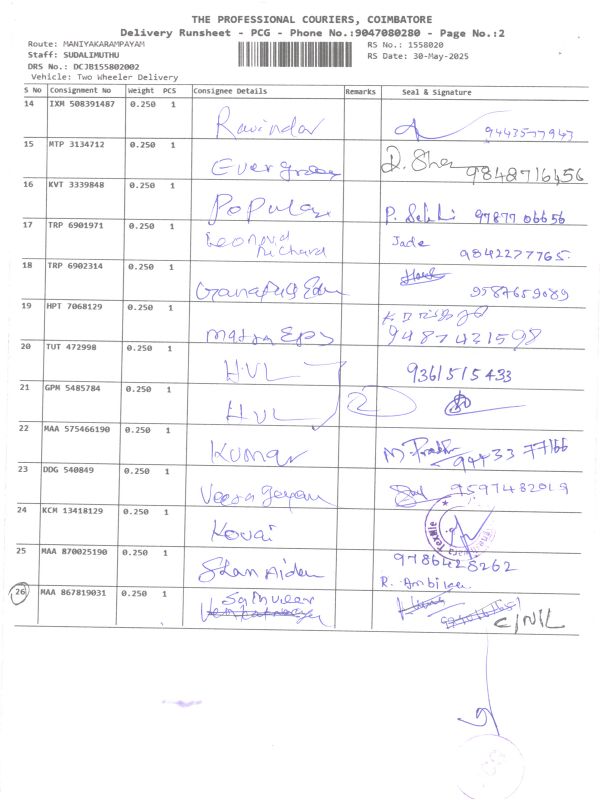 THE PROFESSIONAL COURIERS, COIMBATORE
Delivery Runsheet - PCG - Phone No.:9047080280 - Page No.:2
Route: MANIYAKARAMPAYAM
RS No.: 1558020
Staff: SUDALIMUTHU
RS Date: 30-May-2025
DRS No.: DCJB155802002
Vehicle: Two Wheeler Delivery
S No Consignment No Weight PCS Consignee Details Remarks Seal & Signature
14 IXM 508391487 0.250 1 Ravindar 9443577947
15 MTP 3134712 0.250 1 Evergreen 9848716456
16 KVT 3339848 0.250 1 Popular P. Selvi 9787706656
17 TRP 6901971 0.250 1 Leonard Richard Jade 9842277765
18 TRP 6902314 0.250 1 9587659089
19 HPT 7068129 0.250 1 Matra Eps 9487421598
20 TUT 472998 0.250 1 HUL 9361515433
21 GPM 5485784 0.250 1 HUL 2
22 MAA 575466190 0.250 1 Kumar 9443377166
23 DDG 540849 0.250 1 9597482019
24 KCM 13418129 0.250 1 Kovai
25 MAA 870025190 0.250 1 9786428262
R. Ambika
26 MAA 867819031 0.250 1 C/NIL